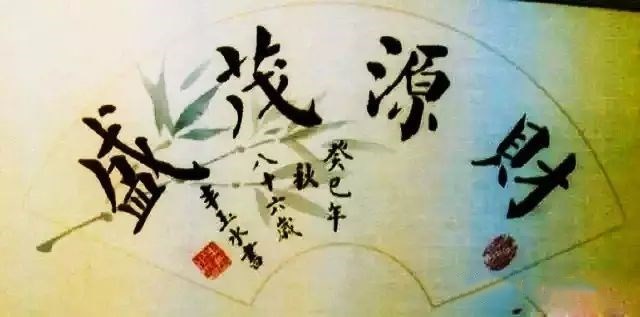 財源茂盛
癸巳年
秋
八十六歳
辛玉水書